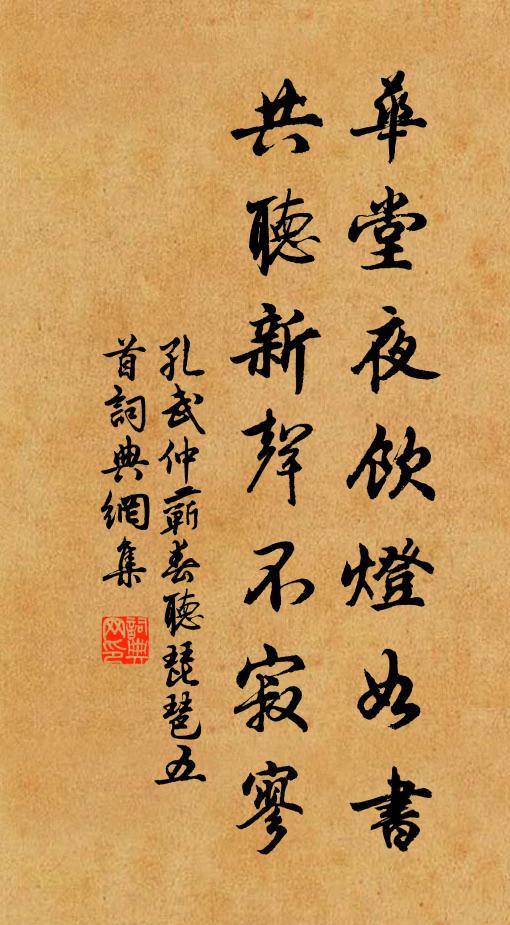 華堂夜飲燈如書
共聽新聲不寂寥
孔武仲蘄春聽琵琶五
首詞典網集
詞典網印